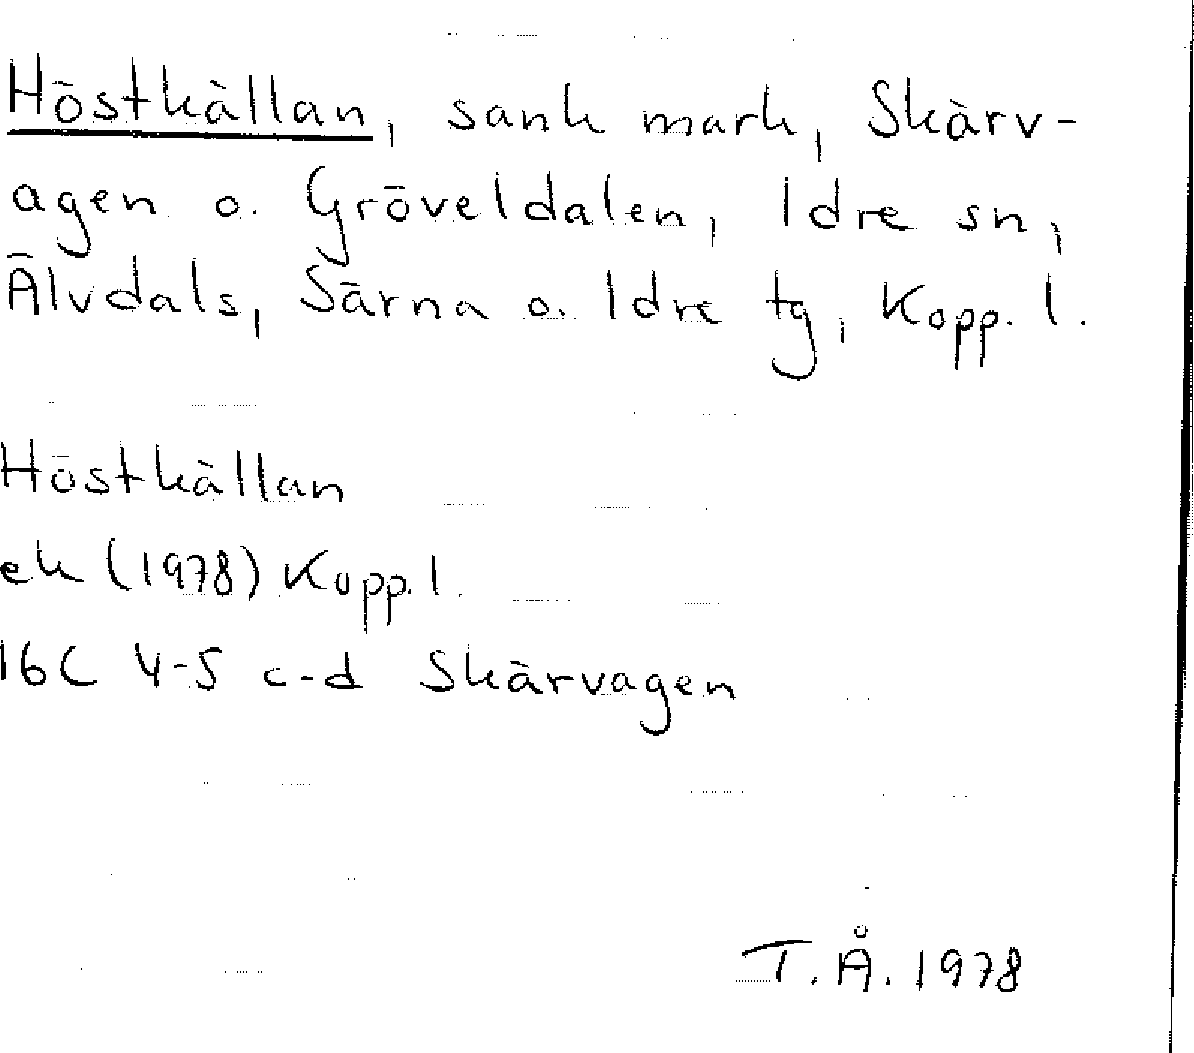 Höstkällan, sank mark, Skärv-
agen o. Gröveldalen, Idre sn,
Älvdals, Särna o. Idre tg, Kopp. l.
Höstkällan
ek (1978) Kopp. l.
16C 4-5 c-d Skärvagen
T. Å. 1978